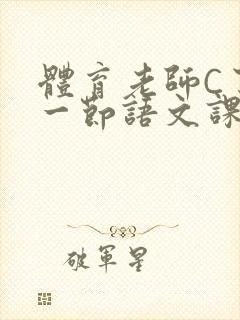 體育老師C
一節語文課
破軍星